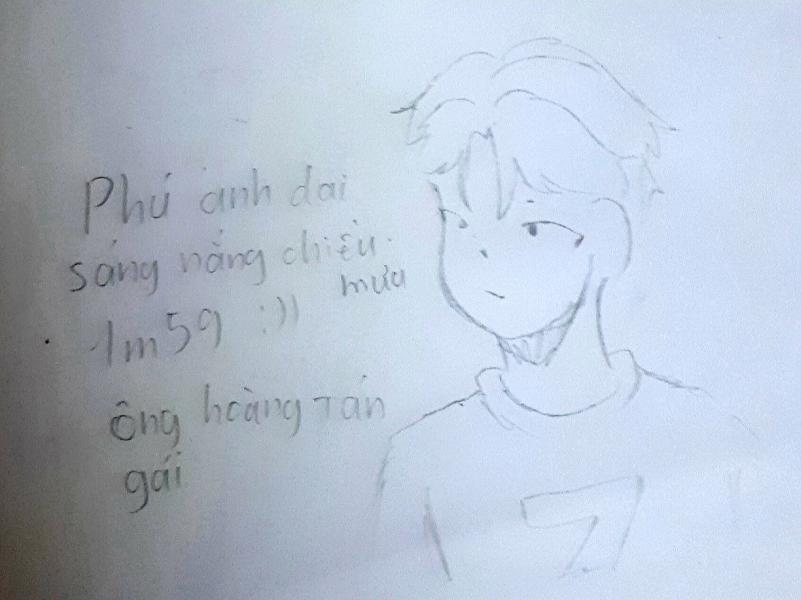 Phú anh dai
sáng nắng chiều
mưa
1m59 :))
ông hoàng Tán
gái
7